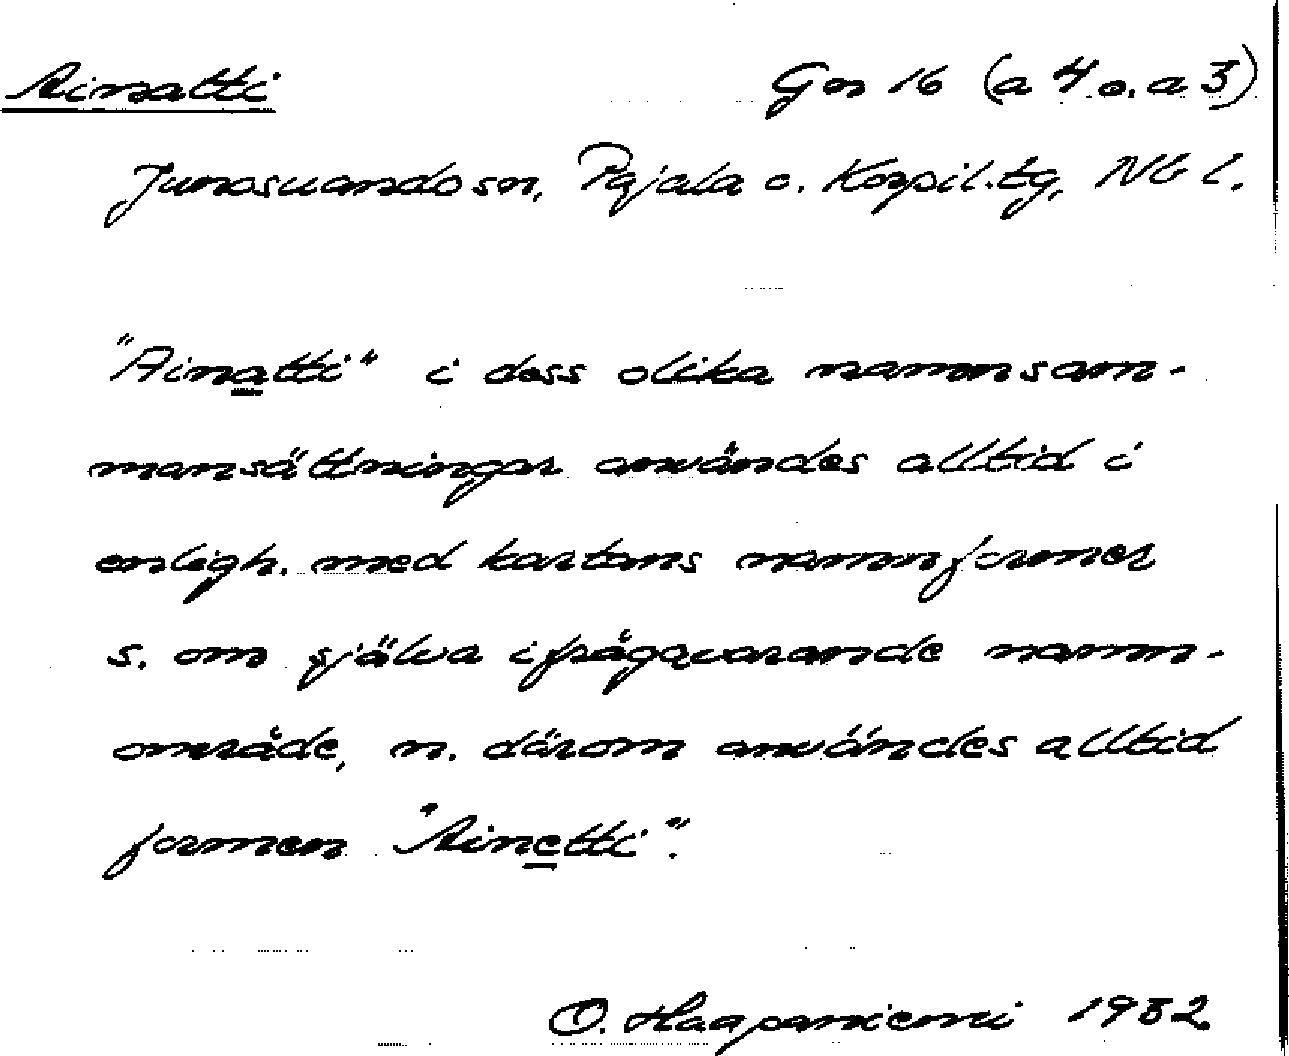 Ainatti Gen 16 (a 4 o. a 3)
Junosuando sn, Pajala o. Korpil. tg, Nb l.
"Ainatti" i dess olika namnsam-
mansättningar användes alltid i
enligh. med kartans namnformer
s. om själva ifrågavarande namn-
område, n. därom användes alltid
formen "Ainetti".
O. Haapaniemi 1932